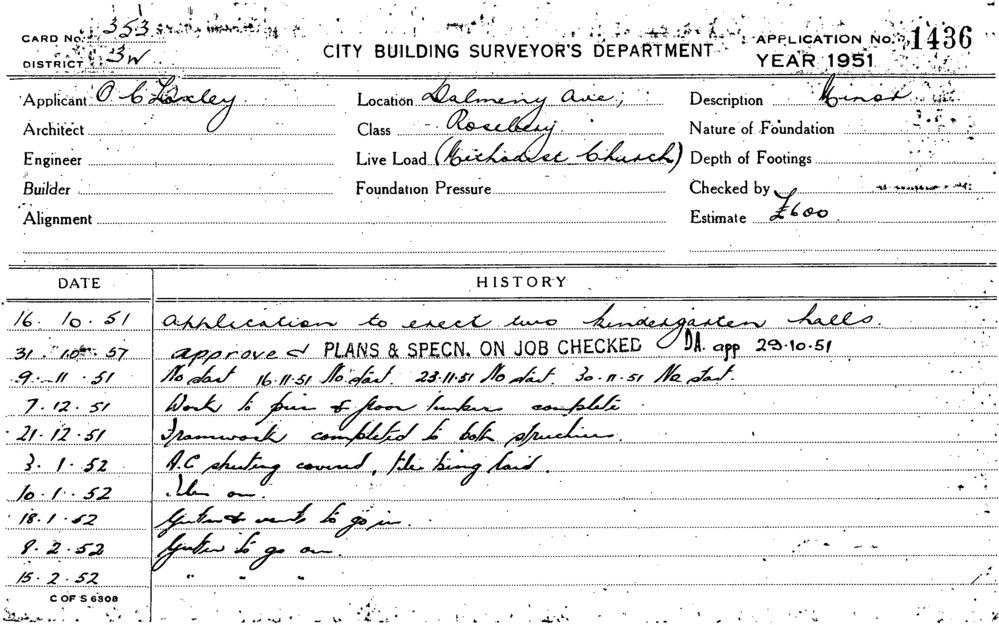 CARD No. 353
DISTRICT 3W
CITY BUILDING SURVEYOR'S DEPARTMENT
APPLICATION No. 1436
YEAR 1951
Applicant O C Foxley Location Dalmeny Ave, Description Minor
Architect Class Rosebery Nature of Foundation
Engineer Live Load (Methodist Church) Depth of Footings
Builder Foundation Pressure Checked by
Alignment Estimate £600
DATE HISTORY
16. 10. 51 Application to erect two kindergarten halls.
31 10 57 approved PLANS & SPECN. ON JOB CHECKED DA. app 29.10.51
9. 11. 51 No start 16.11.51 No start. 23.11.51 No start. 30.11.51 No start.
7. 12. 51 Work to piers & floor complete
21. 12. 51 Framework completed to both structures.
3. 1. 52 A.C sheeting covered, tiles being laid.
10. 1. 52 Tiles on.
18. 1. 52 Gutters & vents to go in.
8. 2. 52 Gutter to go on.
15. 2. 52 " " "
C OF S 6308